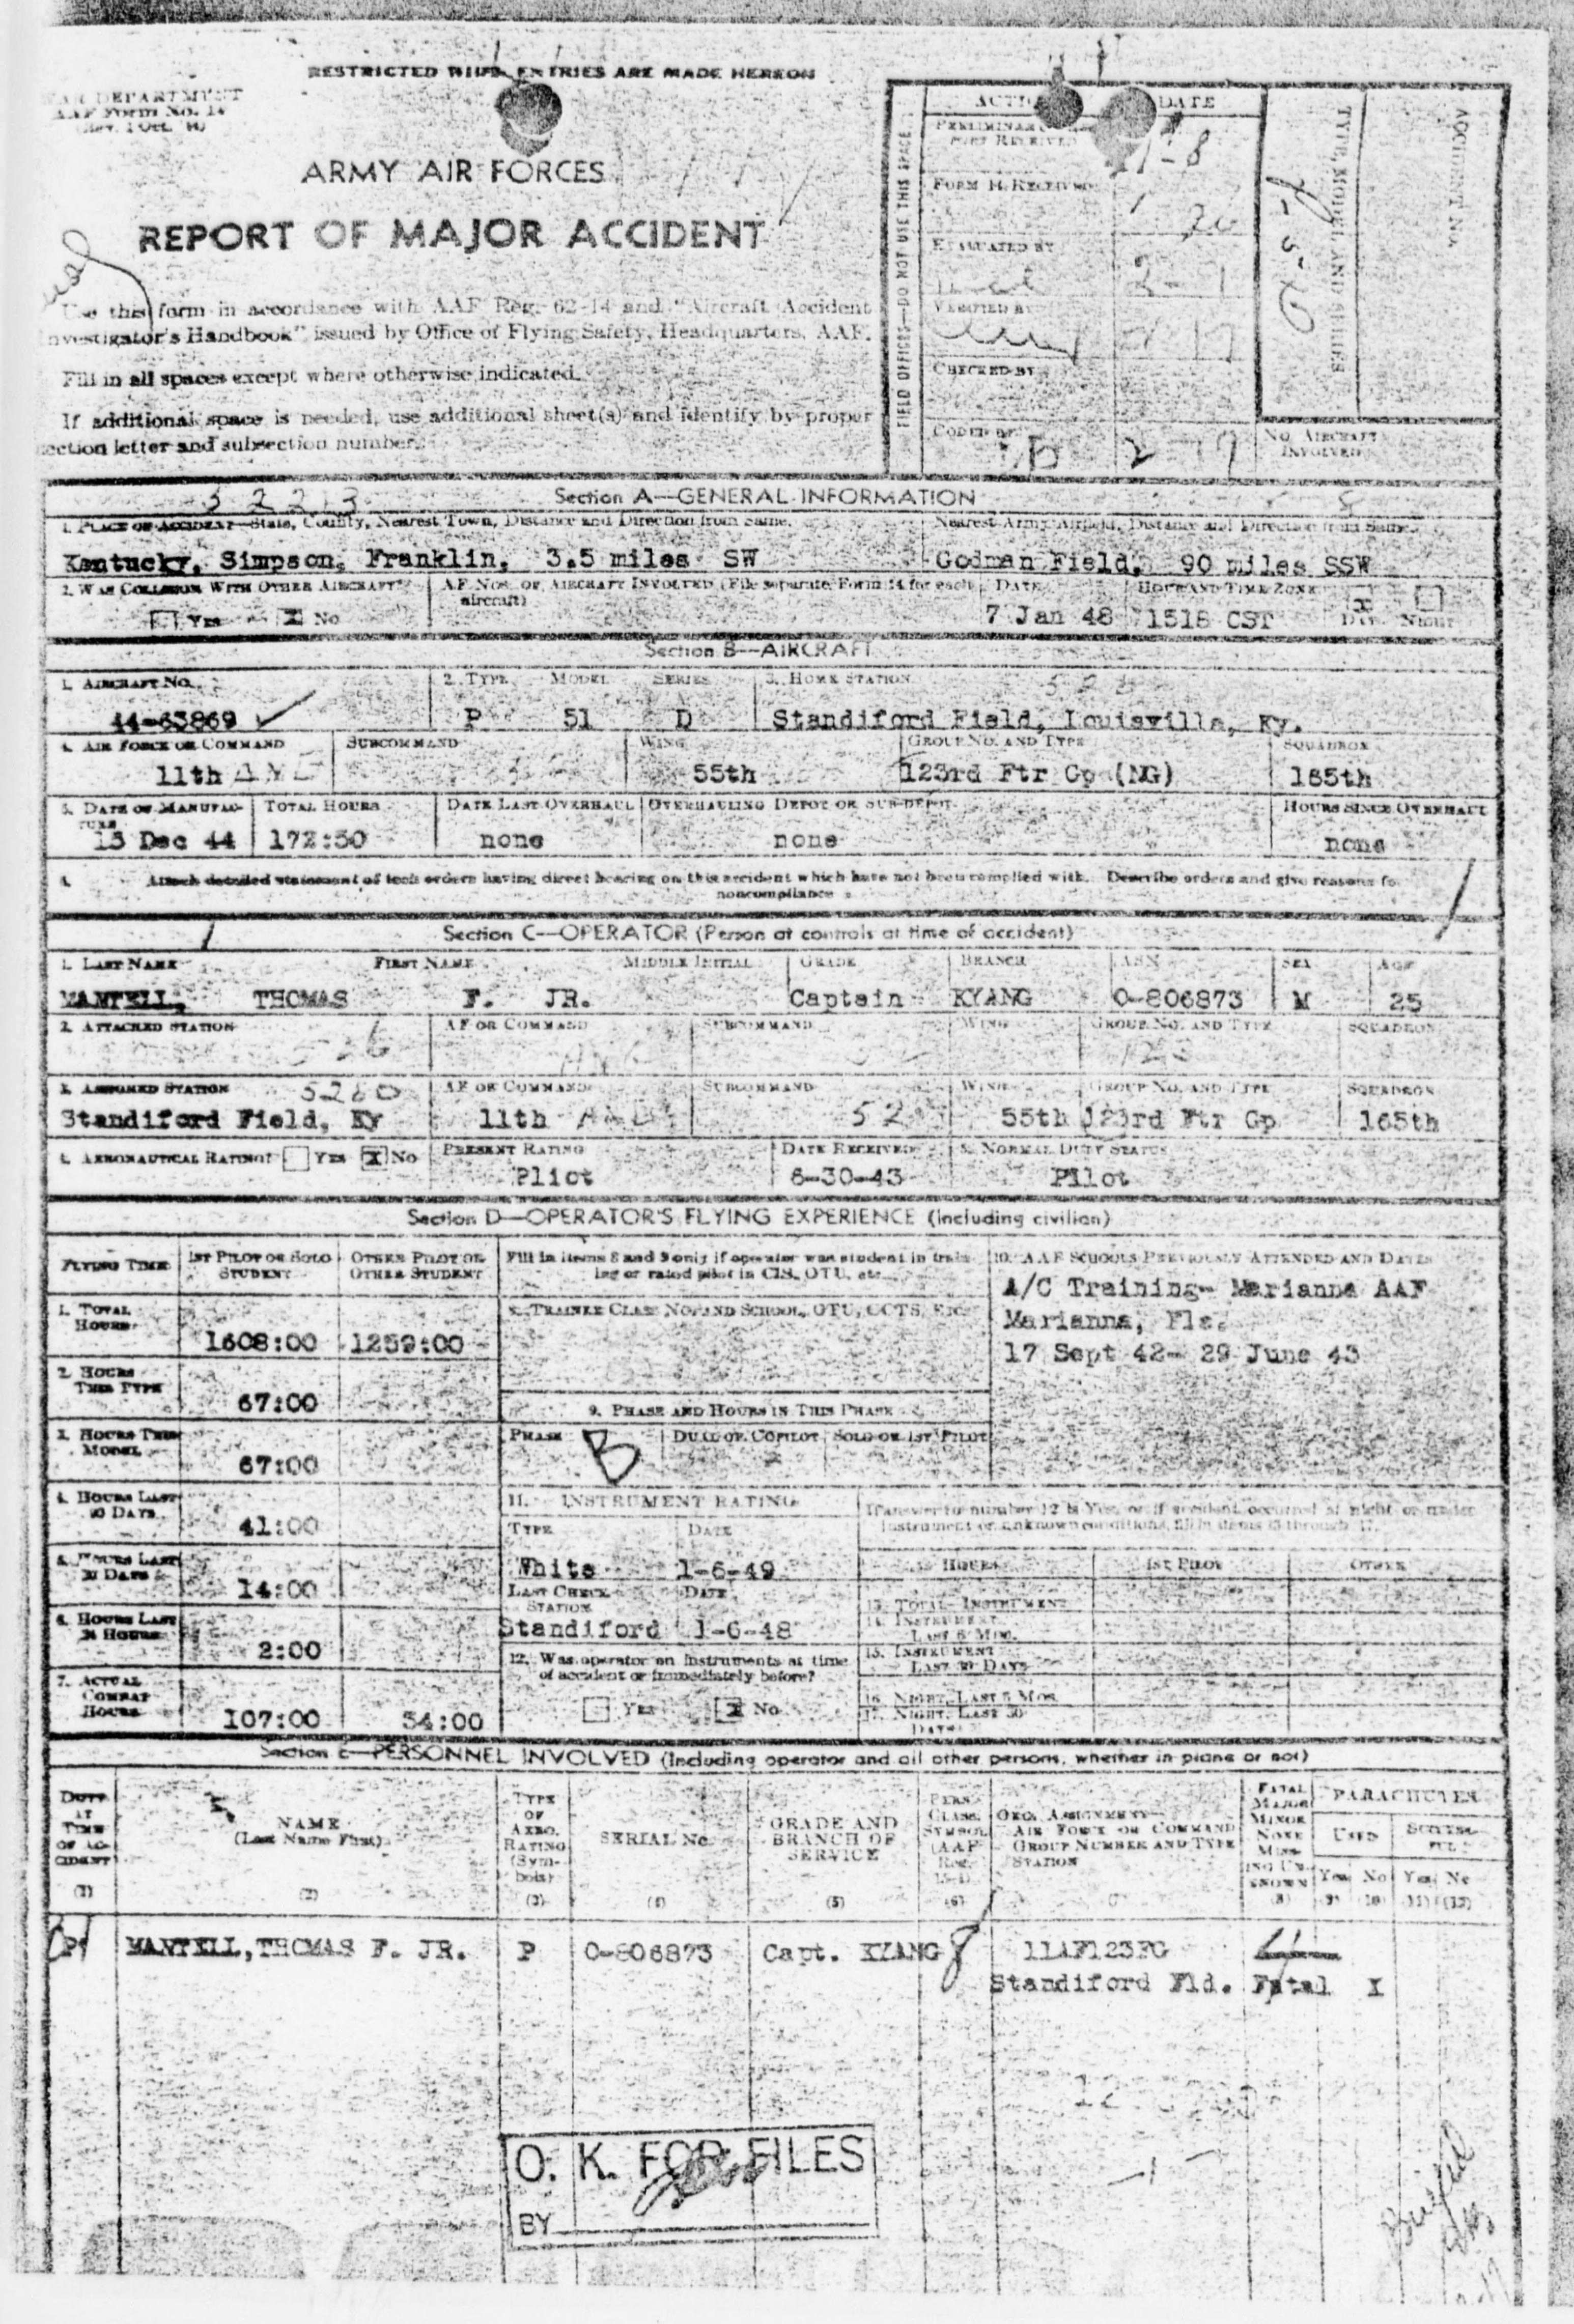 RESTRICTED WHEN ENTRIES ARE MADE HEREON
WAR DEPARTMENT
AAF Form No. 14
ARMY AIR FORCES
REPORT OF MAJOR ACCIDENT
Use this form in accordance with AAF Reg. 62-14 and "Aircraft Accident
Investigator's Handbook" issued by Office of Flying Safety, Headquarters, AAF.
Fill in all spaces except where otherwise indicated.
If additional space is needed, use additional sheet(s) and identify by proper
section letter and subsection number.
FIELD OFFICES—DO NOT USE THIS SPACE
DATE
FORM 14 RECEIVED
20
EVALUATED BY
2-
VERIFIED BY
CHECKED BY
CODED BY
2 19
ACCIDENT NO.
NO. AIRCRAFT
INVOLVED
Section A—GENERAL INFORMATION
1. PLACE OF ACCIDENT—State, County, Nearest Town, Distance and Direction from Same. Nearest Army Airfield, Distance and Direction from Same.
Kentucky, Simpson, Franklin, 3.5 miles SW Godman Field, 90 miles SSW
2. WAS COLLISION WITH OTHER AIRCRAFT? AF NOS. OF AIRCRAFT INVOLVED (File separate Form 14 for each aircraft) DATE HOUR AND TIME ZONE
Yes X No 7 Jan 48 1518 CST X DAY NIGHT
Section B—AIRCRAFT
1. AIRCRAFT NO. 2. TYPE MODEL SERIES 3. HOME STATION
44-63869 P 51 D Standiford Field, Louisville, Ky.
4. AIR FORCE OR COMMAND SUBCOMMAND WING GROUP NO. AND TYPE SQUADRON
11th 55th 123rd Ftr Gp (NG) 165th
5. DATE OF MANUFACTURE TOTAL HOURS DATE LAST OVERHAUL OVERHAULING DEPOT OR SUB-DEPOT HOURS SINCE OVERHAUL
15 Dec 44 172:50 none none none
Attach detailed statement of tech orders having direct bearing on this accident which have not been complied with. Describe orders and give reasons for
noncompliance
Section C—OPERATOR (Person at controls at time of accident)
1. LAST NAME FIRST NAME MIDDLE INITIAL GRADE BRANCH ASN SEX AGE
MANTELL, THOMAS F. JR. Captain KYANG O-806873 M 25
2. ATTACHED STATION AF OR COMMAND SUBCOMMAND WING GROUP NO. AND TYPE SQUADRON
3. ASSIGNED STATION 5260 AF OR COMMAND SUBCOMMAND WING GROUP NO. AND TYPE SQUADRON
Standiford Field, Ky 11th 52 55th 123rd Ftr Gp 165th
4. AERONAUTICAL RATING? YES X NO PRESENT RATING DATE RECEIVED 5. NORMAL DUTY STATUS
Pliot 6-30-43 Pilot
Section D—OPERATOR'S FLYING EXPERIENCE (including civilian)
FLYING TIME 1ST PILOT OR SOLO STUDENT OTHER PILOT OR OTHER STUDENT
1. TOTAL HOURS 1608:00 1259:00
2. HOURS THIS TYPE 67:00
3. HOURS THIS MODEL 67:00
4. HOURS LAST 90 DAYS 41:00
5. HOURS LAST 30 DAYS 14:00
6. HOURS LAST 24 HOURS 2:00
7. ACTUAL COMBAT HOURS 107:00 54:00
Fill in items 8 and 9 only if operator was student in training or rated pilot in CIS, OTU, etc.
8. TRAINEE CLASS NO. AND SCHOOL, OTU, CCTS, ETC.
9. PHASE AND HOURS IN THIS PHASE
PHASE B DUAL OR COPILOT SOLO OR 1ST PILOT
10. AAF SCHOOLS PREVIOUSLY ATTENDED AND DATES
A/C Training- Marianna AAF
Marianna, Fla.
17 Sept 42- 29 June 43
11. INSTRUMENT RATING
TYPE DATE
White 1-6-49
LAST CHECK STATION DATE
Standiford 1-6-48
12. Was operator on instruments at time
of accident or immediately before?
YES X NO
If answer to number 12 is Yes, or if accident occurred at night or under
instrument or unknown conditions, fill in items 13 through 17.
HOURS 1ST PILOT OTHER
13. TOTAL INSTRUMENT
14. INSTRUMENT LAST 6 MOS.
15. INSTRUMENT LAST 30 DAYS
16. NIGHT, LAST 6 MOS.
17. NIGHT, LAST 30 DAYS
Section E—PERSONNEL INVOLVED (Including operator and all other persons, whether in plane or not)
DUTY AT TIME OF ACCIDENT (1)
NAME (Last Name First) (2)
TYPE OF AERO. RATING (Symbols) (3)
SERIAL No. (4)
GRADE AND BRANCH OF SERVICE (5)
PERS. CLASS. SYMBOL (6)
ORG. ASSIGNMENT—AIR FORCE OR COMMAND GROUP NUMBER AND TYPE STATION
FATAL MAJOR MINOR NONE MISSING UNKNOWN (8)
PARACHUTES
USED SUCCESSFUL
Yes No Yes No
(9) (10) (11) (12)
P MANTELL,THOMAS F. JR. P O-806873 Capt. KYANG 8 11AF123FG 4
Standiford Fld. Fatal X
O. K. FOR FILES
BY